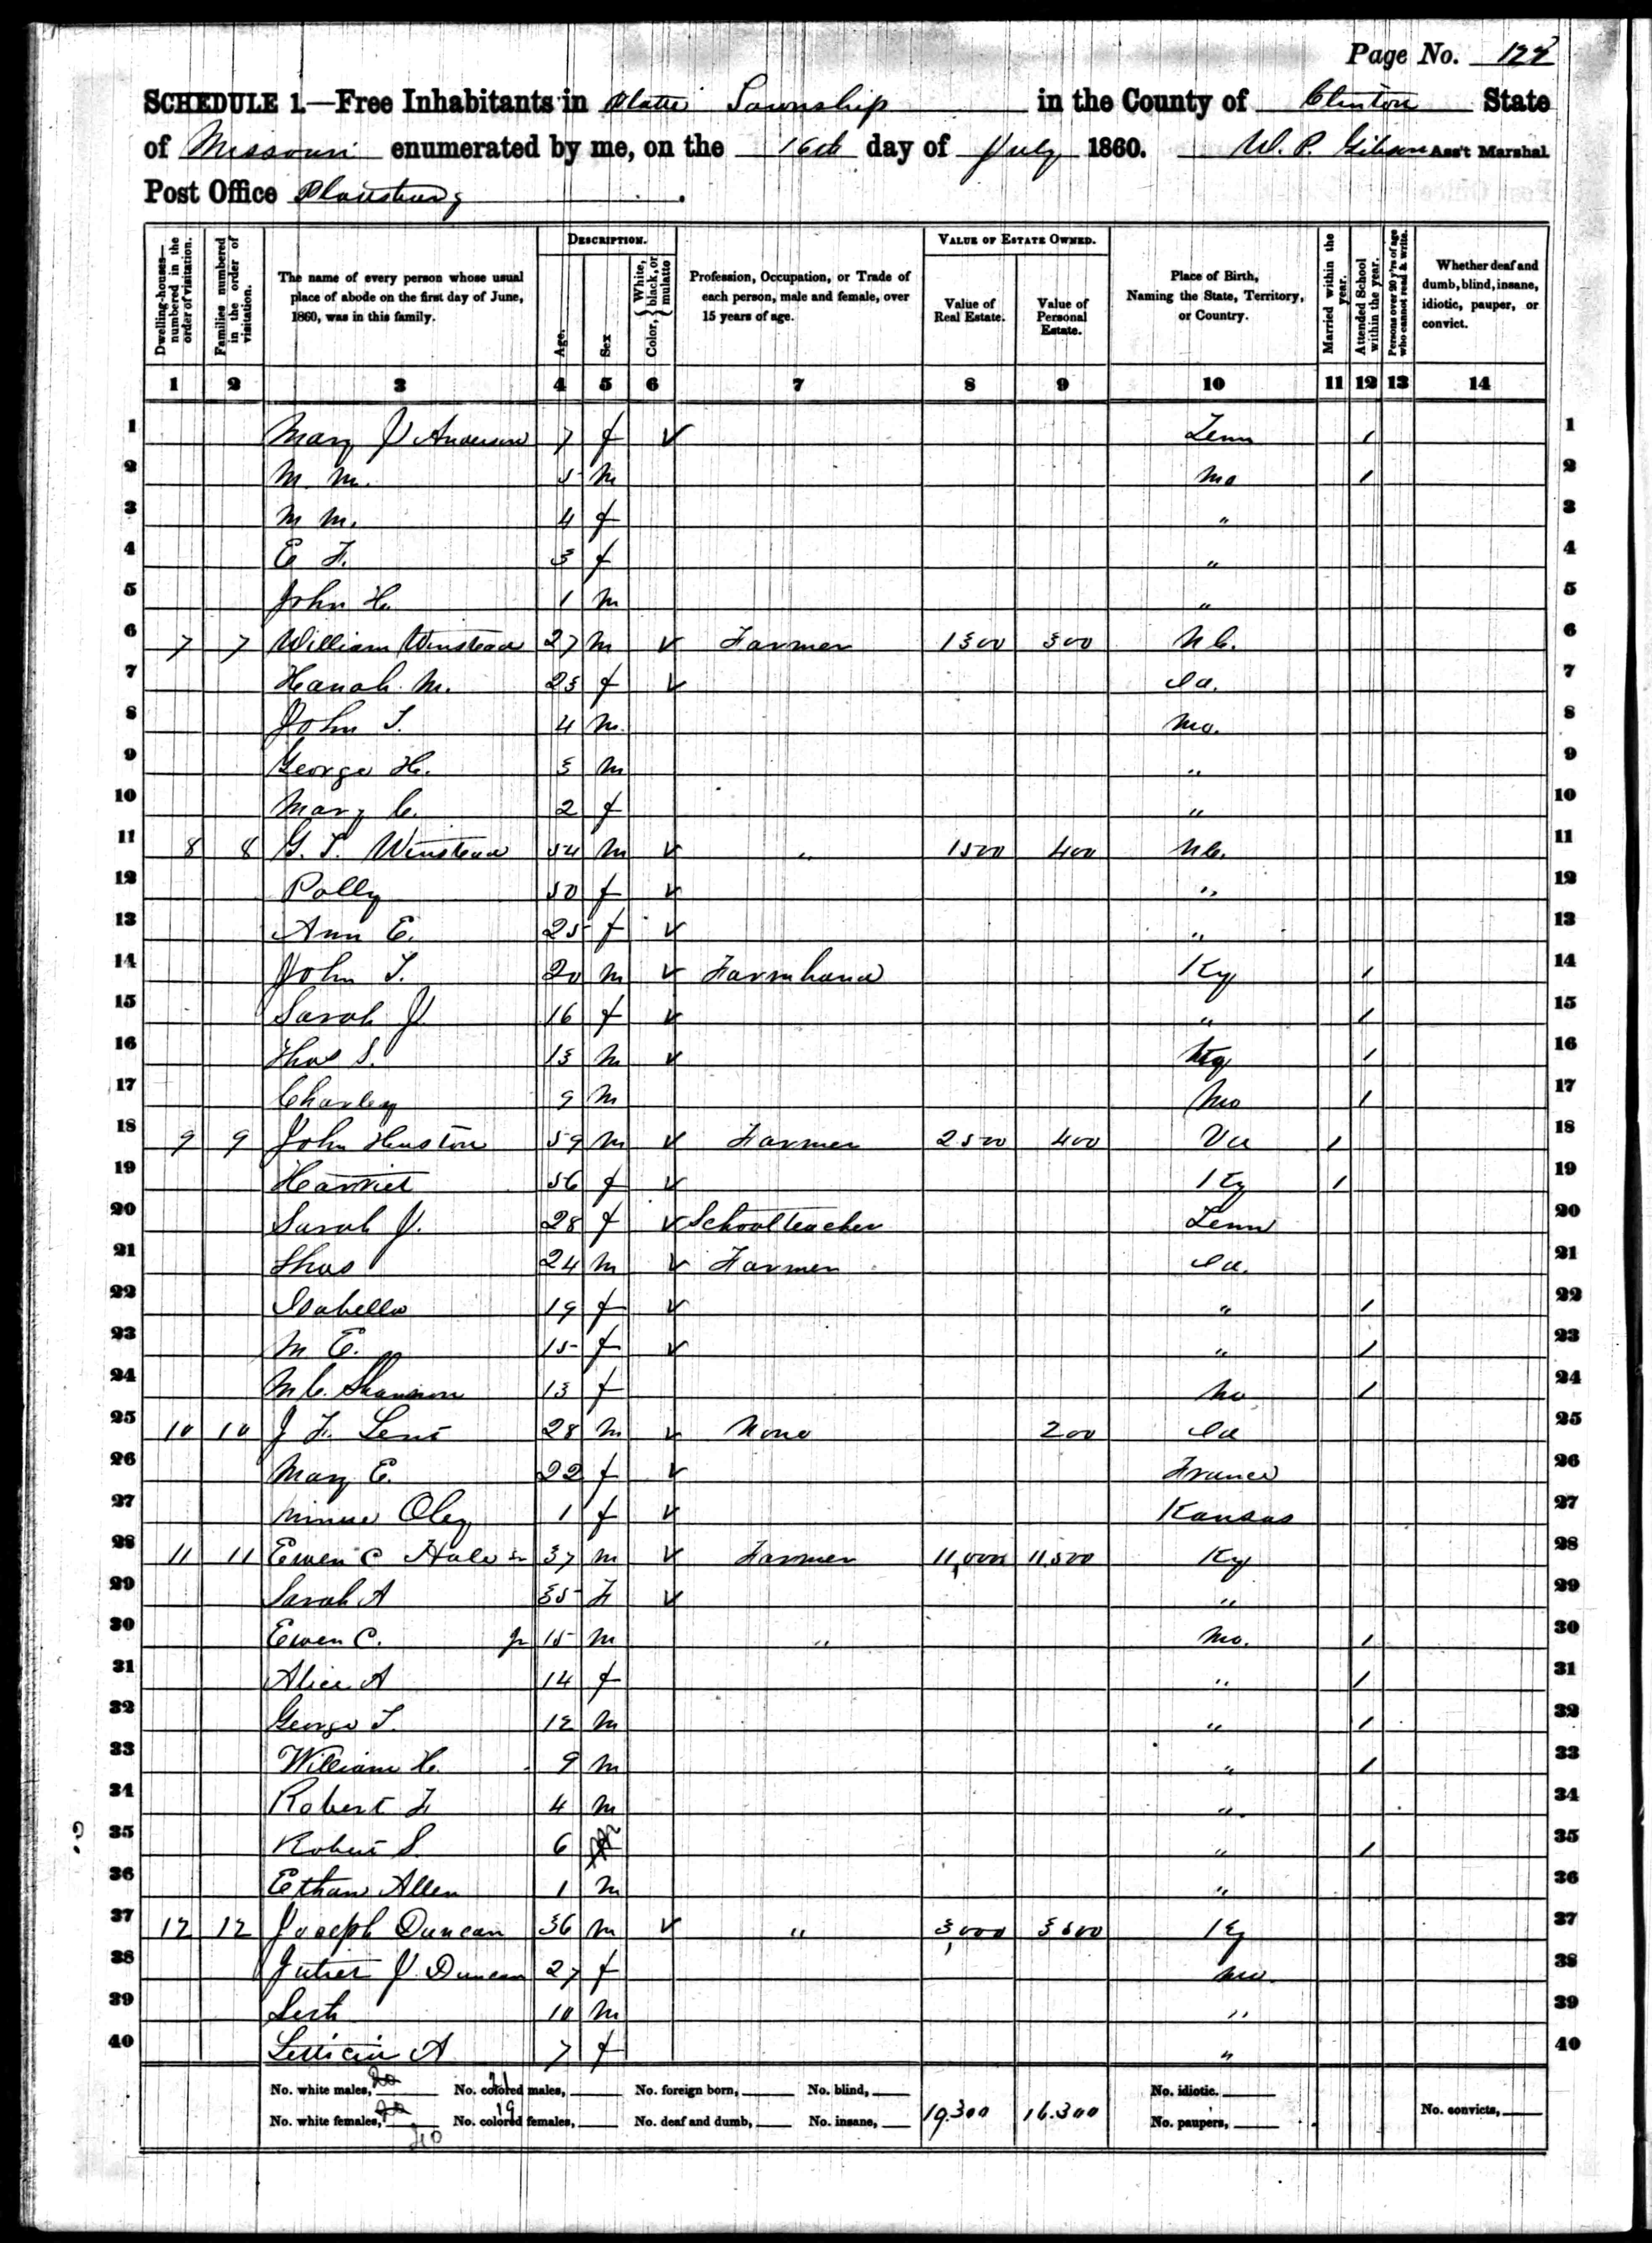 Page No. 122
SCHEDULE 1.—Free Inhabitants in Platte Township in the County of Clinton State
of Missouri enumerated by me, on the 16th day of July 1860. W. P. Gibson Ass't Marshal
Post Office Plattsburg.
Dwelling-houses—numbered in the order of visitation. Families numbered in the order of visitation. The name of every person whose usual place of abode on the first day of June, 1860, was in this family. DESCRIPTION. Age. Sex Color, {White, black, or mulatto Profession, Occupation, or Trade of each person, male and female, over 15 years of age. VALUE OF ESTATE OWNED. Value of Real Estate. Value of Personal Estate. Place of Birth, Naming the State, Territory, or Country. Married within the year. Attended School within the year. Persons over 20 y'rs of age who cannot read & write. Whether deaf and dumb, blind, insane, idiotic, pauper, or convict.
1 2 3 4 5 6 7 8 9 10 11 12 13 14
1 Mary J Anderson 7 f Tenn / 1
2 M. M. 5 m Mo / 2
3 M M. 4 f " 3
4 E F. 3 f " 4
5 John H. 1 m " 5
6 7 7 William Winstead 27 m Farmer 1300 300 N C. 6
7 Hanah M. 23 f Ia. 7
8 John T. 4 m. Mo. 8
9 George H. 3 m " 9
10 Mary C. 2 f " 10
11 8 8 G. T. Winstead 54 m " 1500 400 N C. 11
12 Polly 50 f " 12
13 Ann E. 25 f " 13
14 John T. 20 m Farmhand Ky / 14
15 Sarah J 16 f " / 15
16 Thos S. 13 m Ky / 16
17 Charley 9 m Mo / 17
18 9 9 John Huston 59 m Farmer 2500 400 Va / 18
19 Harriet 56 f Ky / 19
20 Sarah J. 28 f School teacher Tenn 20
21 Thos 24 m Farmer Ia. 21
22 Isabella 19 f " / 22
23 M E. 15 f " / 23
24 M C. Shannon 13 f Mo / 24
25 10 10 J F. 28 m None 200 Ia 25
26 Mary E. 22 f France 26
27 1 f Kansas 27
28 11 11 Ewen C Hale Sr 37 m Farmer 11,000 11,500 Ky 28
29 Sarah A 35 F " 29
30 Ewen C. Jr 15 m " Mo. / 30
31 Alice A 14 f " / 31
32 George T. 12 m " / 32
33 William H. 9 m " / 33
34 Robert F 4 m " 34
35 Robert S. 6 " / 35
36 Ethan Allen 1 m " 36
37 12 12 Joseph Duncan 36 m " 3,000 3500 Ky 37
38 J. Duncan 27 f Mo. 38
39 10 m " 39
40 Letticia A 7 f " 40
No. white males, 20 21 No. colored males, No. foreign born, No. blind, No. idiotic.
No. white females, 20 19 No. colored females, No. deaf and dumb, No. insane, 19.300 16.300 No. paupers, No. convicts,
40